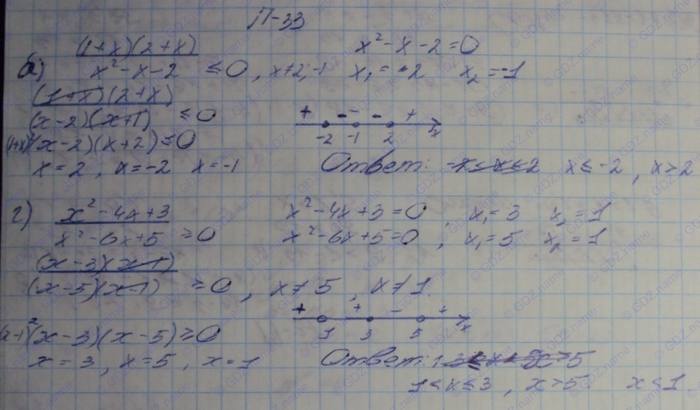 П-33
б) (1+x)(2+x) / x²-x-2 ≤0, x≠2,-1 x²-x-2=0 x₁=-2 x₂=-1
(1+x)(2+x) / (x-2)(x+1) ≤0
+ - - + x
-2 -1 2
(1+x)²(x-2)(x+2)≤0
x=2, x=-2 x=-1 Ответ: x≤-2, x>2
г) x²-4x+3 / x²-6x+5 ≥0 x²-4x+3=0, x₁=3 x₂=1
x²-6x+5=0, x₁=5 x₂=1
(x-3)(x-1) / (x-5)(x-1) ≥0, x≠5, x≠1
+ + - + x
1 3 5
(x-1)²(x-3)(x-5)≥0
x=3, x=5, x=1 Ответ:
1<x≤3, x>5 x<1